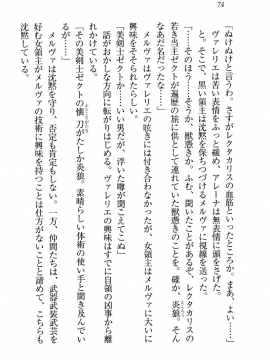 74
「ぬけぬけと言うわ。さすがレクタカリスの血筋といったところか。まあ、よい……」
ヴァレリエは苦い表情をふっと緩め、アレーナは無表情に頭をさげた。
と。そこで、黒い領主は沈黙を保っていたメルヴァに視線を送った。
「……そのほう……そうか、獣憑きか。ふむ、聞いたことがあるぞ、レクタカリスの
若き当主ゼクトが遍歴の旅に供わせていた獣憑きのことを。確か、炎狼。そん
なあだ名だったな……」
メルヴァはヴァレリエの呟きには付き合わなかったが、女領主はメルヴァに大いに
興味をそそられたらしい。
「美剣士ゼクトか……いい男だが、浮いた噂が聞こえてこぬ」
話がおかしな方向に転がりはじめる。ヴァレリエの興味はすでに自領の凶事から離
れている。
「その美剣士ゼクトの懐刀がたしか炎狼。素晴らしい体術の使い手と聞き及ぶが」
メルヴァは沈黙を守り、否定も肯定もしない。一方、仲間たちは、武器武装武芸を
好む女領主がメルヴァの技術に興味を持つことは仕方がないことと諦めて、こちらも
沈黙している。